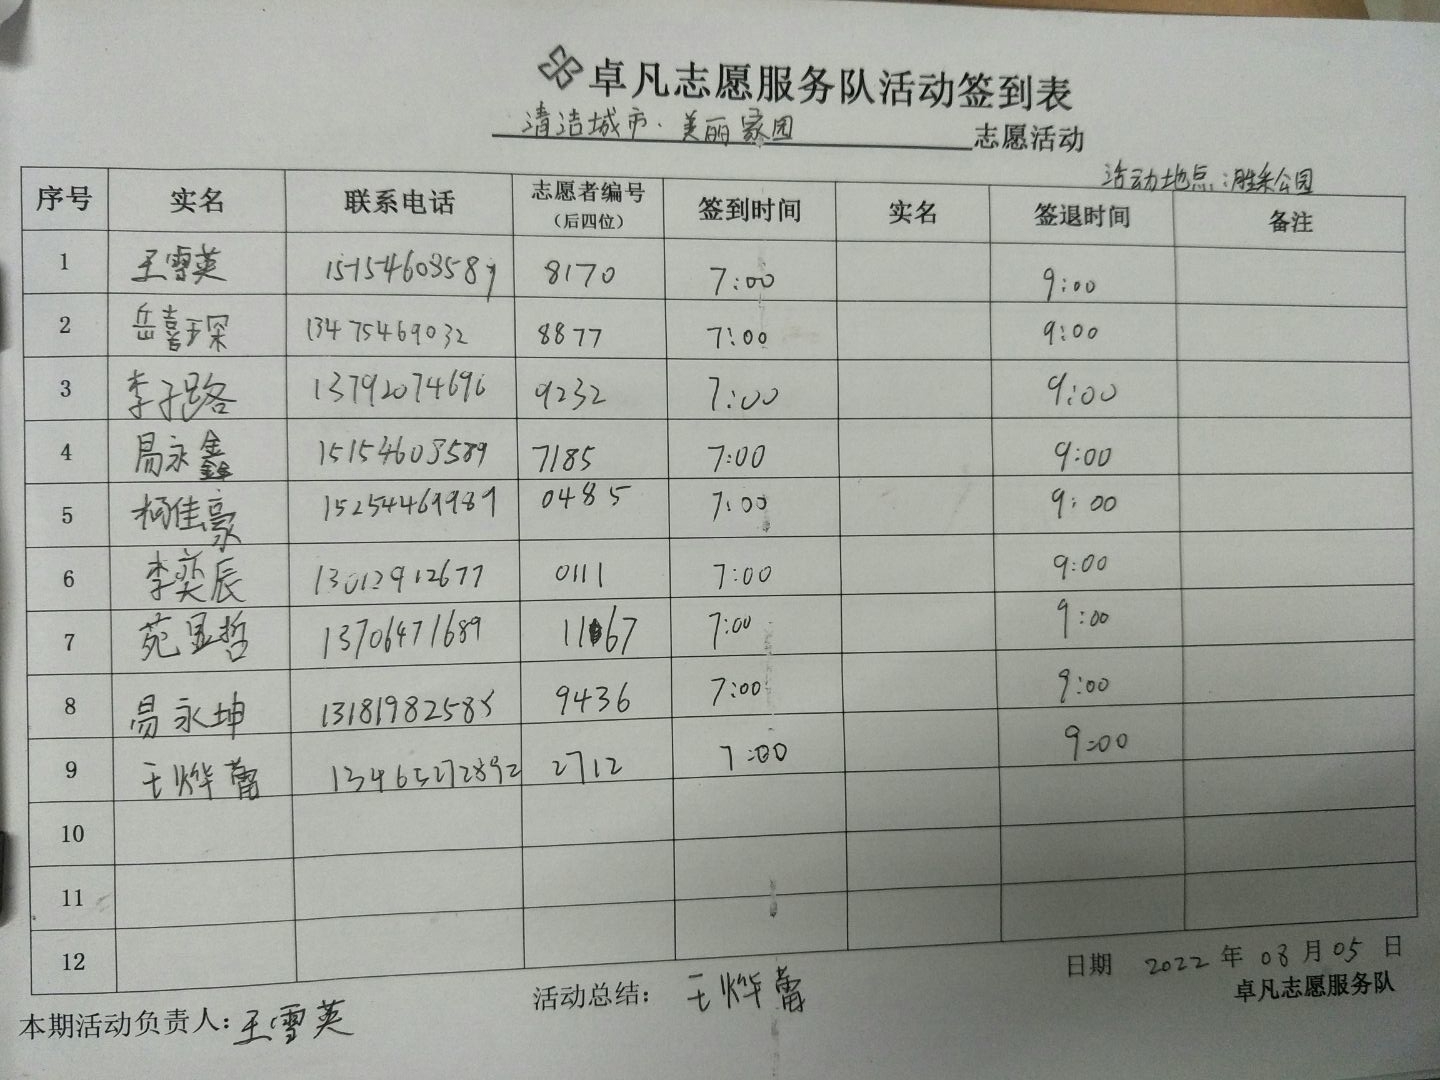 卓凡志愿服务队活动签到表
清洁城市·美丽家园 志愿活动
活动地点:胜采公园
序号 实名 联系电话 志愿者编号(后四位) 签到时间 实名 签退时间 备注
1 王雪英 15154603589 8170 7:00 9:00
2 岳喜琛 13475469032 8877 7:00 9:00
3 李子路 13792074696 9232 7:00 9:00
4 易永鑫 15154603589 7185 7:00 9:00
5 杨佳豪 15254469989 0485 7:00 9:00
6 李奕辰 13012912677 0111 7:00 9:00
7 苑昱哲 13706471689 1167 7:00 9:00
8 易永坤 13181982585 9436 7:00 9:00
9 王烨蕾 13465272892 2712 7:00 9:00
10
11
12
日期 2022年08月05日
本期活动负责人:王雪英 活动总结: 王烨蕾 卓凡志愿服务队